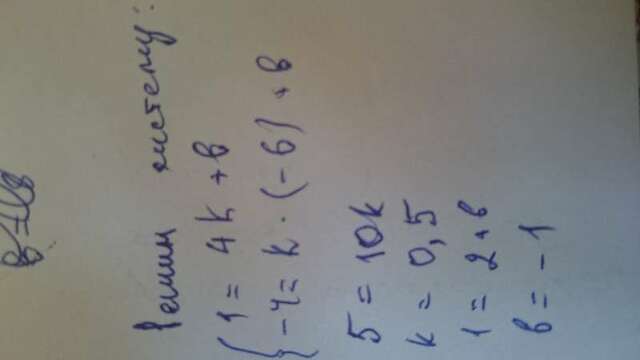 Решим систему:
1 = 4k + в
-4 = k · (-6) + в
5 = 10k
k = 0,5
1 = 2 + в
в = -1